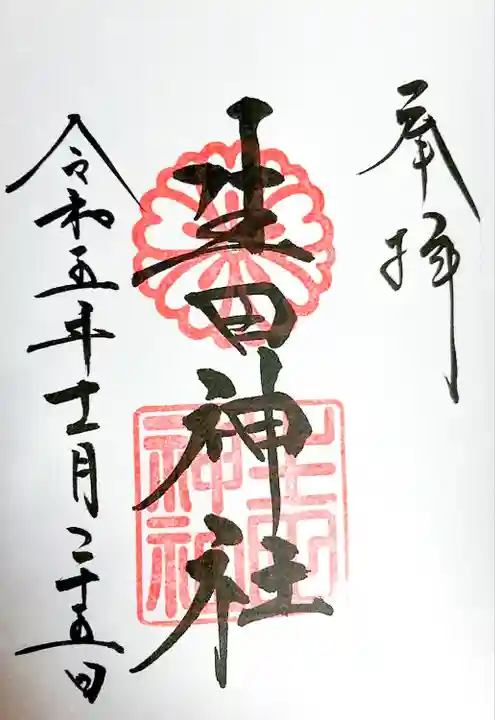 奉拝
生田神社
生田
神社
令和五年十一月二十五日